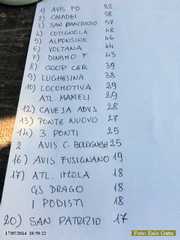 1) AVIS FO 92
2) CAVADEI 58
3) SAN PANCRAZIO 58
4) COTIGNOLA 48
5) ALFONSINE 46
6) VOLTANA 44
7) DINAMO F. 43
8) COOP CER 39
9) LUGHESINA 38
10) LOCOMOTIVA 29
ATL. MAMELI 29
12) CAVEJA ADVS 28
13) PONTE NUOVO 27
14) 3 PONTI 25
2 AVIS C. BOLOGNESE 25
16) AVIS FUSIGNANO 19
17) ATL. IMOLA 18
GS DRAGO 18
I PODISTI 18
20) SAN PATRIZIO 17
17/08/2024 18:59:22
Foto: Enio Costa